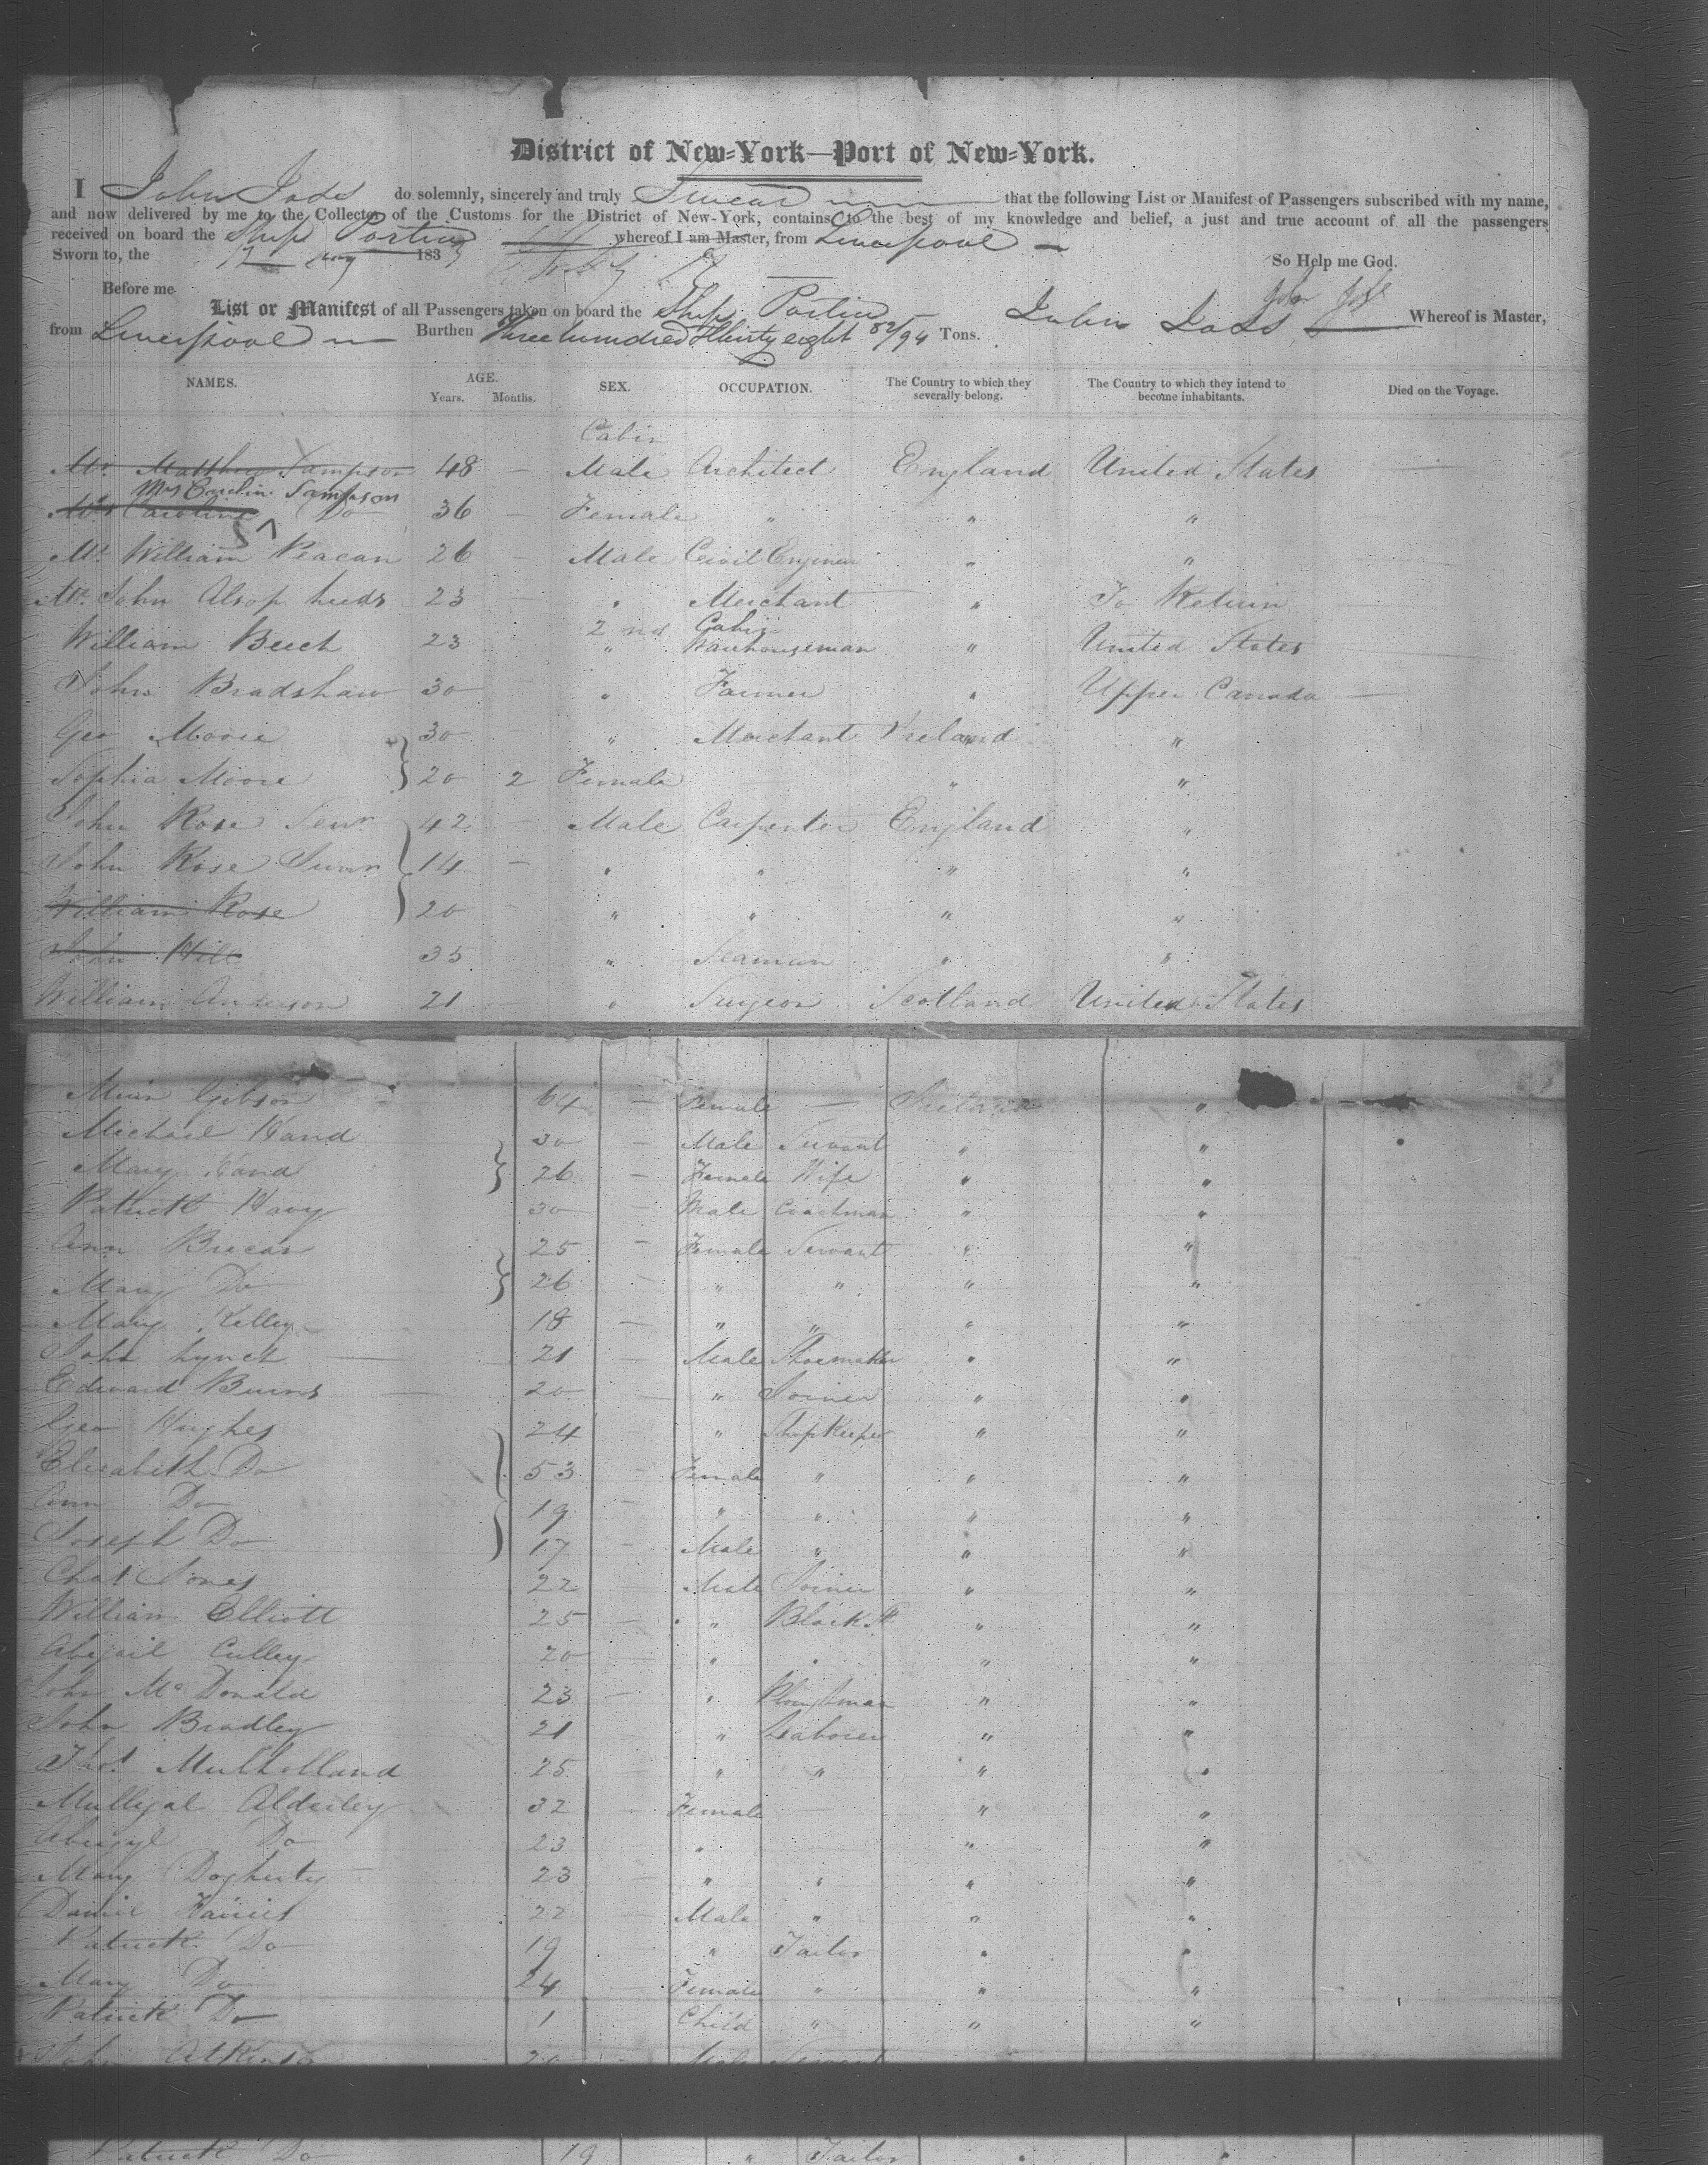 District of New-York—Port of New-York.
I John Joss do solemnly, sincerely and truly Swear that the following List or Manifest of Passengers subscribed with my name,
and now delivered by me to the Collector of the Customs for the District of New-York, contains to the best of my knowledge and belief, a just and true account of all the passengers
received on board the Ship Portia whereof I am Master, from Liverpool
Sworn to, the 17 Aug 183
So Help me God.
Before me
List or Manifest of all Passengers taken on board the Ship Portia John Joss Whereof is Master,
from Liverpool Burthen Three hundred Thirty eight 82/94 Tons.
NAMES. AGE. Years. Months. SEX. OCCUPATION. The Country to which they severally belong. The Country to which they intend to become inhabitants. Died on the Voyage.
Cabin
Mr. Matthew Sampson 48 Male Architect England United States
Mrs Sampson
Mrs Caroline Do 36 Female " " "
Mr. William 26 Male Civil Engineer " "
Mr. John Alsop 23 " Merchant " To Return
2nd Cabin
William Beech 23 " Warehouseman " United States
John Bradshaw 30 " Farmer " Upper Canada
Geo Moore 30 " Merchant Ireland "
Sophia Moore 20 2 Female " "
John Rose Senr 42 Male Carpenter England "
John Rose Junr 14 " " " "
William Rose 20 " " " "
John Hill 35 " Seaman " "
William Anderson 21 " Surgeon Scotland United States
Gibson 64 Female — Ireland "
Michael Hand 30 Male Servant " "
Mary Hand 26 Female Wife " "
Patrick 30 Male Coachman " "
Ann 25 Female Servant " "
Mary Do 26 " " " "
Mary Kelley 18 " " " "
John Lynch 21 Male Shoemaker " "
Edward Burns 20 " Joiner " "
Geo Hughes 24 " Shop Keeper " "
Elizabeth Do 53 Female " " "
Ann Do 19 " " " "
Joseph Do 17 Male " " "
Chas Jones 22 Male Joiner " "
William Elliott 25 " Black St. " "
Abigail Culley 20 " " " "
John McDonald 23 " Ploughman " "
John Bradley 21 " Laborer " "
Thos Mulholland 25 " " " "
Alderley 32 Female — " "
Do 23 " " "
Mary Dogherty 23 " " " "
Daniel 22 Male " " "
Patrick Do 19 " Tailor " "
Mary Do 24 Female " " "
Patrick Do 1 Child " " "
John Atkinson 20 Male Servant
Patrick Do 19 " Tailor " "